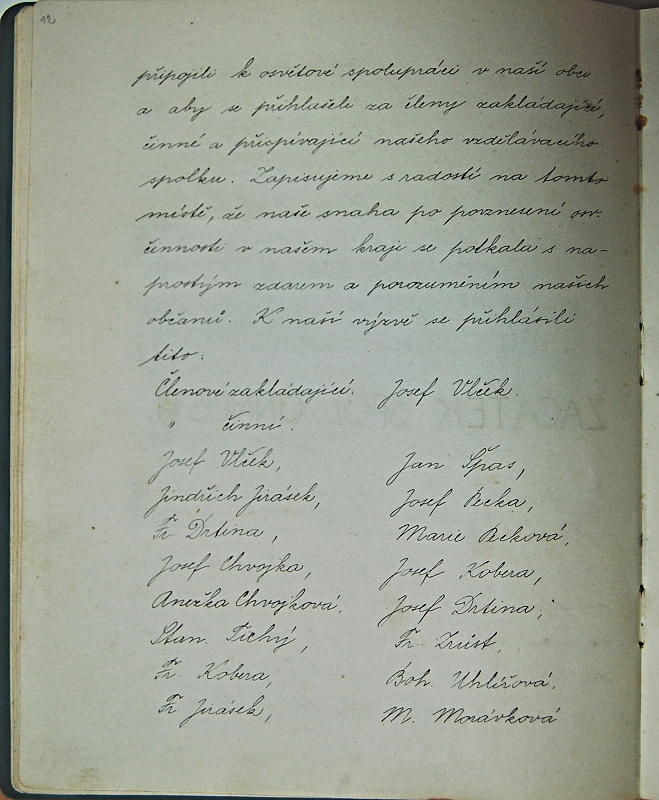 12
připojili k osvětové spolupráci v naší obci
a aby se přihlásili za členy zakládající,
činné a přispívající našeho vzdělávacího
spolku. Zapisujeme s radostí na tomto
místě, že naše snaha po povznesení osv.
činnosti v našem kraji se potkala s na-
prostým zdarem a porozuměním našich
občanů. K naší výzvě se přihlásili
tito:
Členové zakládající: Josef Vlček.
" činní:
Josef Vlček, Jan Špas,
Jindřich Jirásek, Josef Becka,
Fr. Drtina, Marie Becková,
Josef Chvojka, Josef Kobera,
Anežka Chvojková, Josef Drtina,
Stan. Tichý, Fr. Zrůst,
Fr. Kobera, Boh. Uhlířová,
Fr. Jirásek, M. Morávková